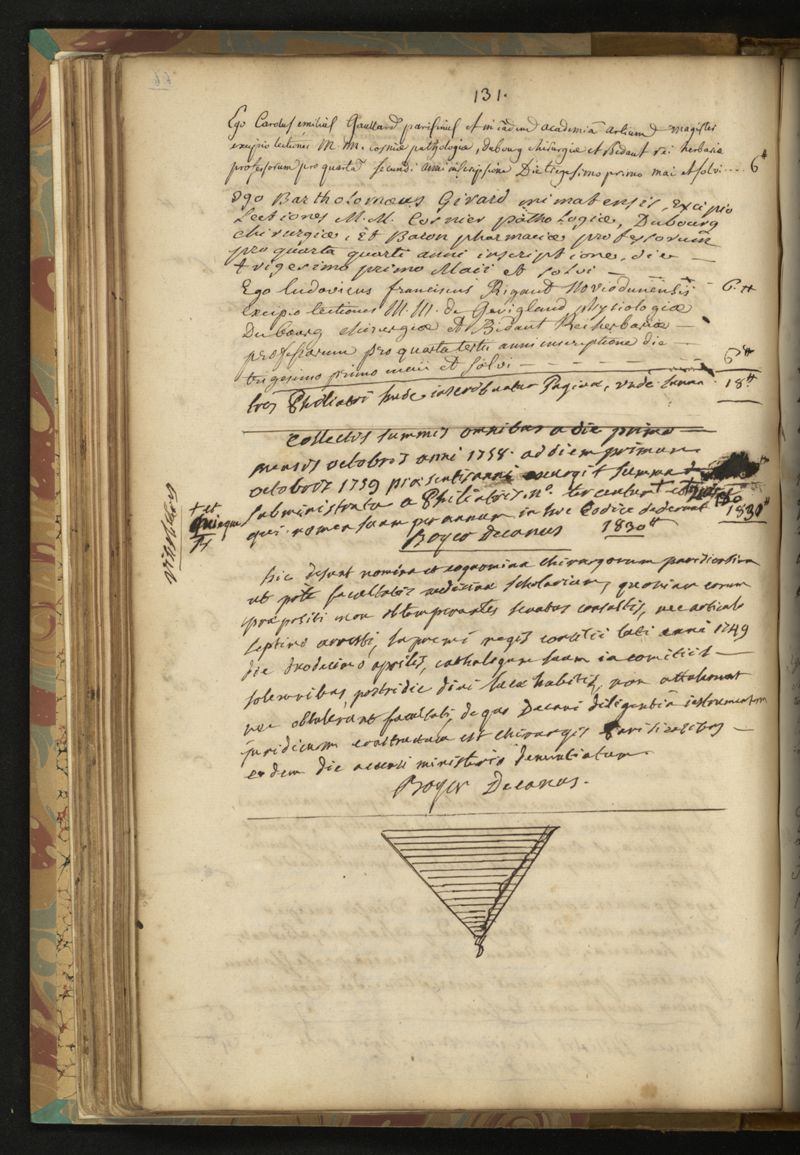 131.
Ego Carolus emilius Gaullard parisinus et in eadem academia artium magister
excipio lectiones M. M. cosnier pathologiæ, dubourg chirurgiæ et Bidaut rei herbariæ
professorum pro quarta secundi anni inscriptione Die trigesimo primo maii et solvi .... 6#
Ego Bartholomæus Girard mimatensis, excipio
Lectiones M. M. Cosnier pathologiæ, Dubourg
chirurgiæ, Et Baron pharmaciæ professorum
pro quarta quarti anni inscriptione, die —
trigesimo primo Maii et solvi — 6.#
Ego ludovicus franciscus Rigaut Noviodunensis
excipio lectiones M. M. de Gevigland physiologiæ
Dubourg chirurgiæ et Bidaut Rei herbariæ —
professorum pro quarta tertii anni inscriptione die —
trigesimo primo maii et solvi — — — — 6#
tres Philiatri huic inscribuntur Paginæ, unde summa 18#
Collectis summis omnibus a die primo
mensis octobris anni 1758. ad diem primum
octobris 1759 præsentis anni exurgit summa
subministrata a Philiatris N°. tercentum
qui nomen suum per annum in hoc Codice dederunt 1830#
Boyer Decanus 1830#
+ et
quinque
hic desunt nomina et cognomina chirurgorum parisiensium
ut pote facultatis medicinæ scholarium, quoniam eorum
præpositi non obtemperantes senatus consultis, nec articulo
septimo arresti, supremi regis consilii lati anni 1749
die duodecimo aprilis, cathalogum suum in comitiis —
solemnibus postridie divi lucæ habitis, non attulerunt
nec obtulerunt facultati, de quo Decani diligentia instrumentum
juridicum confectum est chirurgis parisiensibus —
eodem die accensi ministerio denuntiatum.
Boyer Decanus.